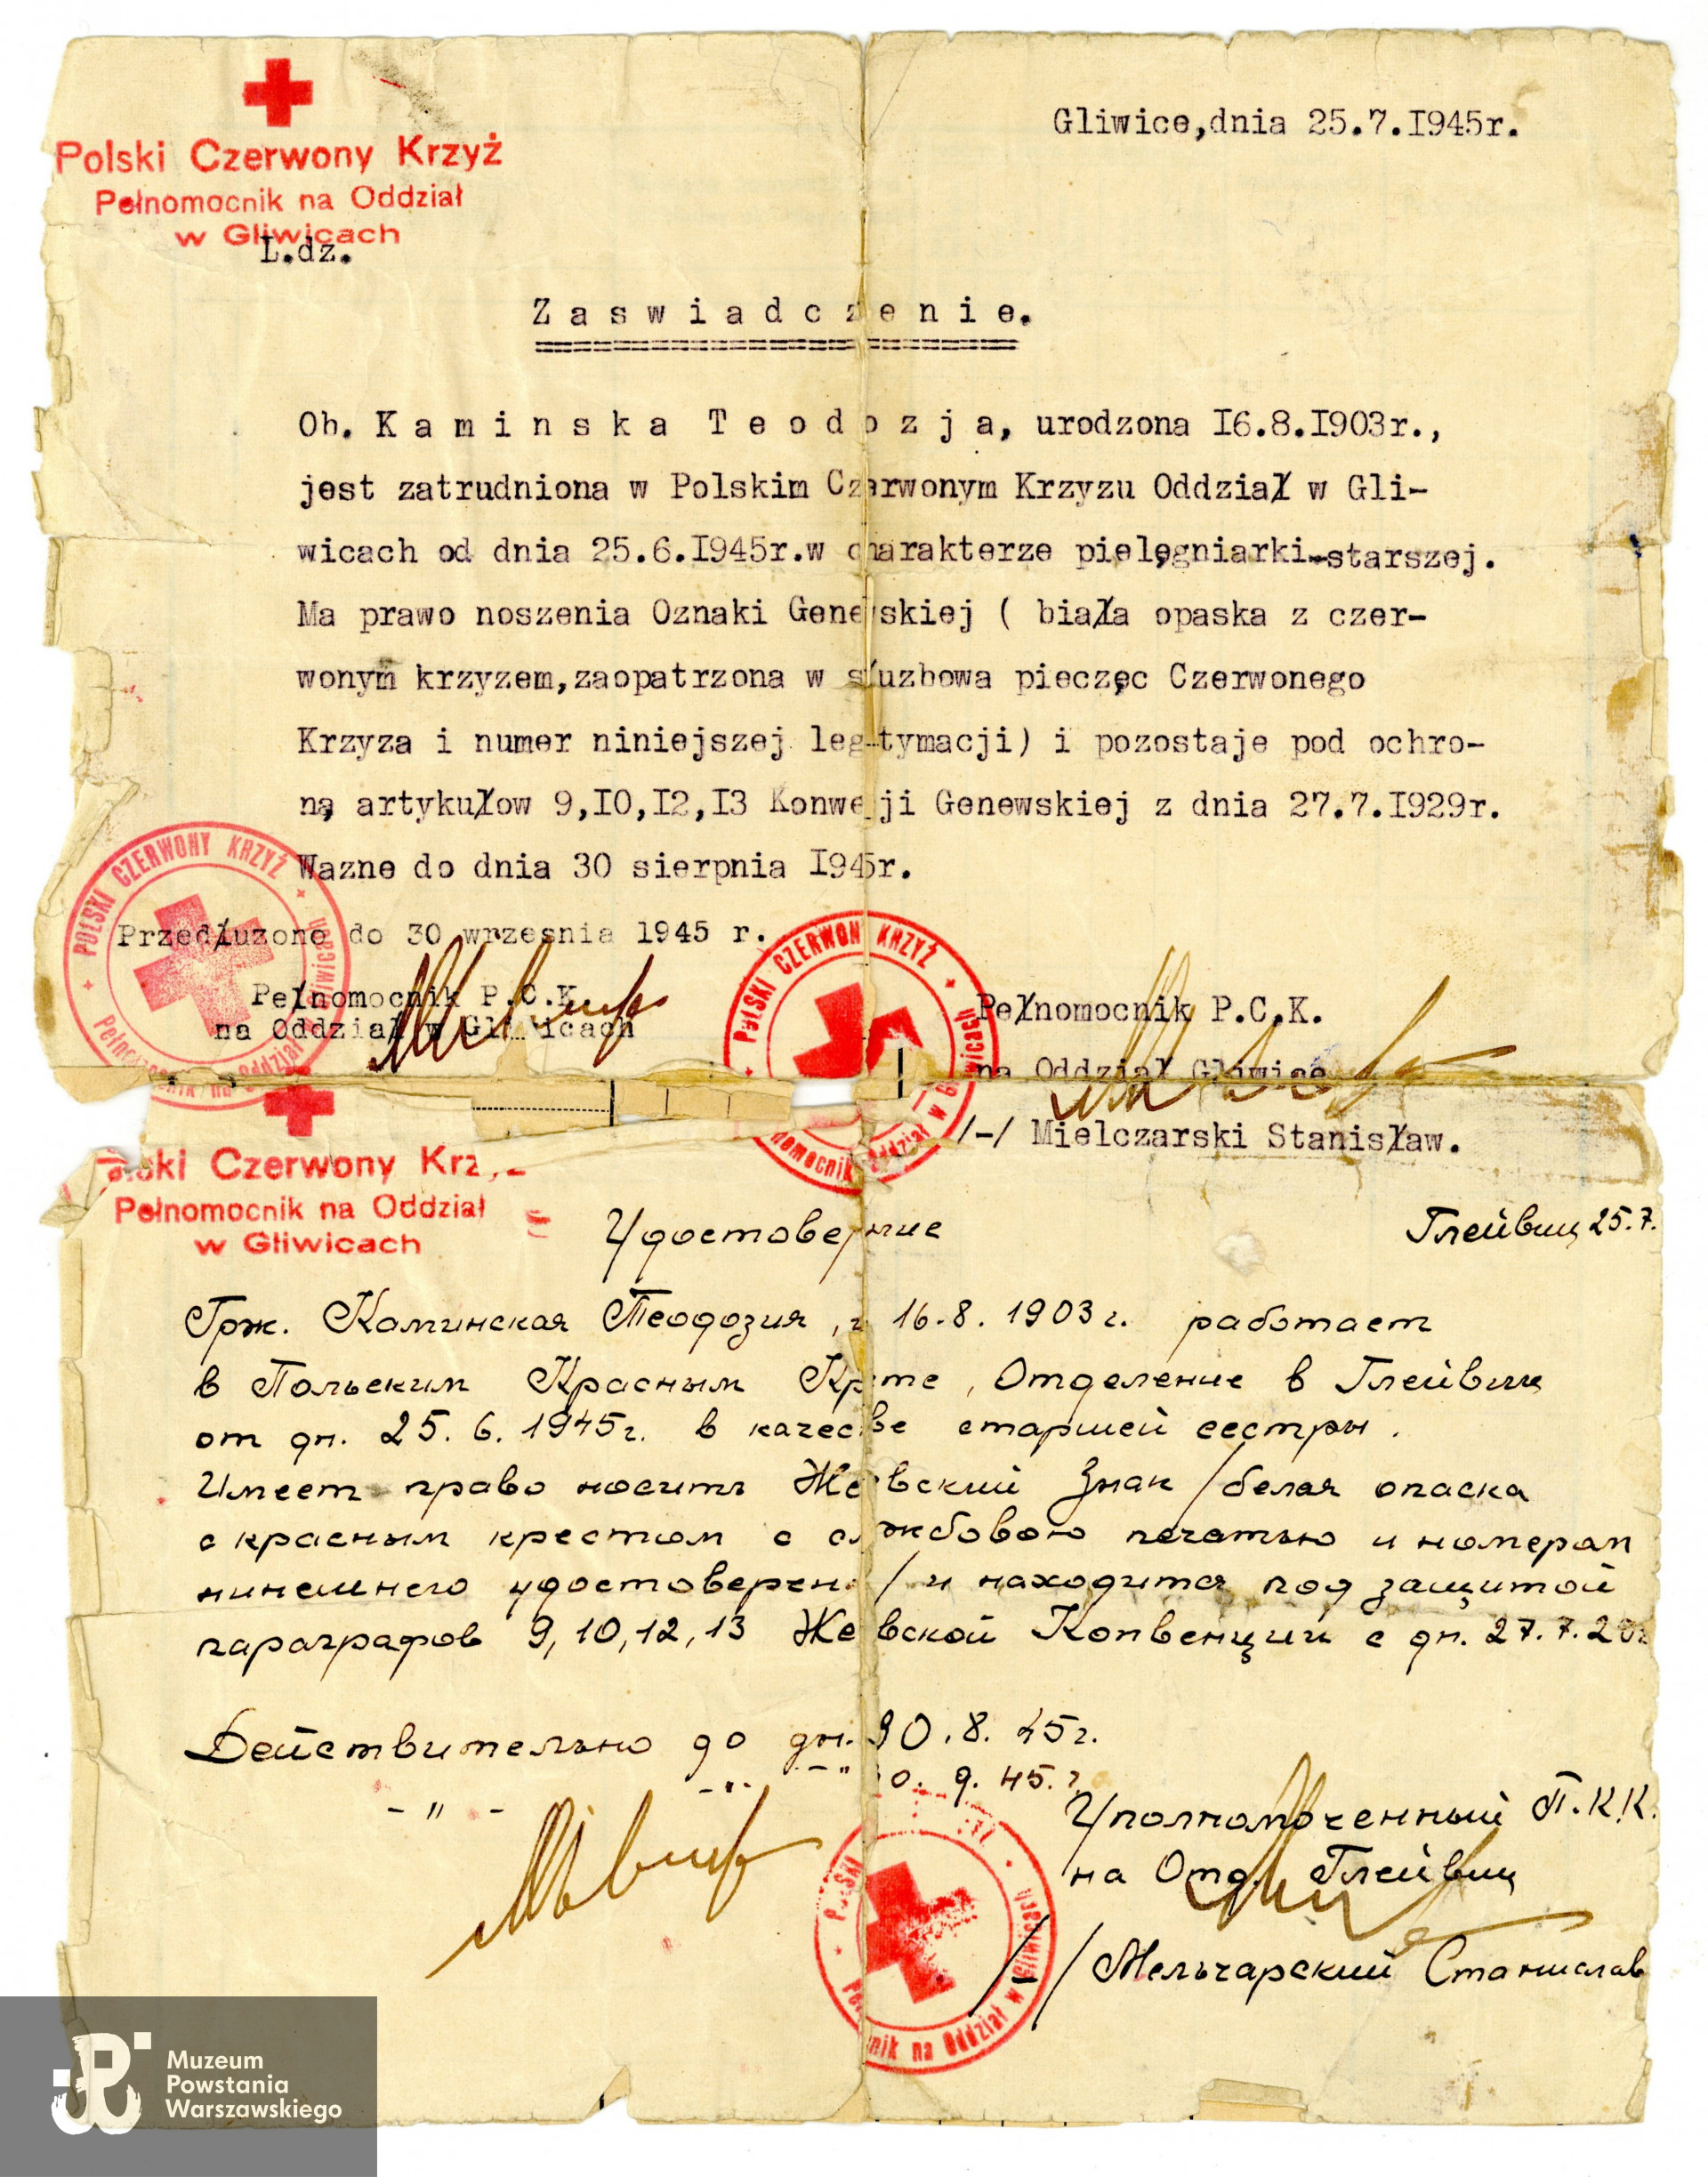 Polski Czerwony Krzyż
Pełnomocnik na Oddział
w Gliwicach
L.dz.
Gliwice,dnia 25.7.I945r.
Z a s w i a d c z e n i e.
Ob. K a m i n s k a T e o d o z j a, urodzona I6.8.I903r.,
jest zatrudniona w Polskim Czerwonym Krzyzu Oddział w Gli-
wicach od dnia 25.6.I945r.w charakterze pielęgniarki-starszej.
Ma prawo noszenia Oznaki Genewskiej ( biała opaska z czer-
wonym krzyzem,zaopatrzona w służbowa pieczęc Czerwonego
Krzyza i numer niniejszej legitymacji) i pozostaje pod ochro-
ną artykułow 9,I0,I2,I3 Konwe ji Genewskiej z dnia 27.7.I929r.
Wazne do dnia 30 sierpnia I945r.
Przedłuzono do 30 wrzesnia 1945 r.
Pełnomocnik P.C.K.
na Oddział w Gliwicach
POLSKI CZERWONY KRZYŻ
Pełnomocnik na Oddział w Gliwicach
POLSKI CZERWON KRZYŻ
nomocnik Oddział w Gliwicach
Pełnomocnik P.C.K.
na Oddział Gliwice
/-/ Mielczarski Stanisław.
ski Czerwony Krz
Pełnomocnik na Oddział
w Gliwicach
Удостове ние
Глейвиц 25.7.
Грж. Каминская Теодозия, 16.8.1903г. работает
в Польским Красным Кр те, Отделение в Глейвиц
от дн. 25.6.1945г. в качес ве старшей сестры.
Имеет право носить Же вский Знак /белая опаска
с красным крестом с с жбовою печатью и номерам
нинешнего удостоверен / и находится под защитой
параграфов 9,10,12,13 Же вской Конвенций с дн. 27.7.2
Действительно до дн. 30.8.45г.
- " - - " - - " 0.9.45.г
Уполномоченный П.К.К.
на Отд. Глейвиц
/-/ Мельчарский Станислав
P SKI
Peł nik na Oddział w Gliwicach
Muzeum
Powstania
Warszawskiego